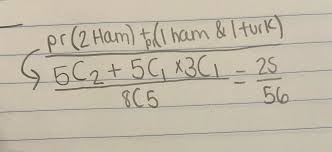 pr(2 Ham) + p(1 ham & 1 turk)
5C2 + 5C1 × 3C1 = 25
8C5 56